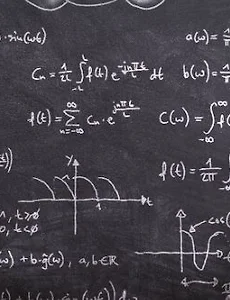 · sin(ωt) a(ω) = 1/
Cₙ = 1/2L ∫_{-L}^{L} f(t) e^{-j nπt/L} dt b(ω) = 1/
f(t) = ∑_{n=-∞}^{∞} Cₙ · e^{j nπt/L} C(ω) = ∫_{-∞}^{∞} f(
f(t) = 1/2π ∫_{-∞}
y
1 t
1, t≥0
0, t<0
cos(
(ω) + b·g(ω), a,b∈ℝ